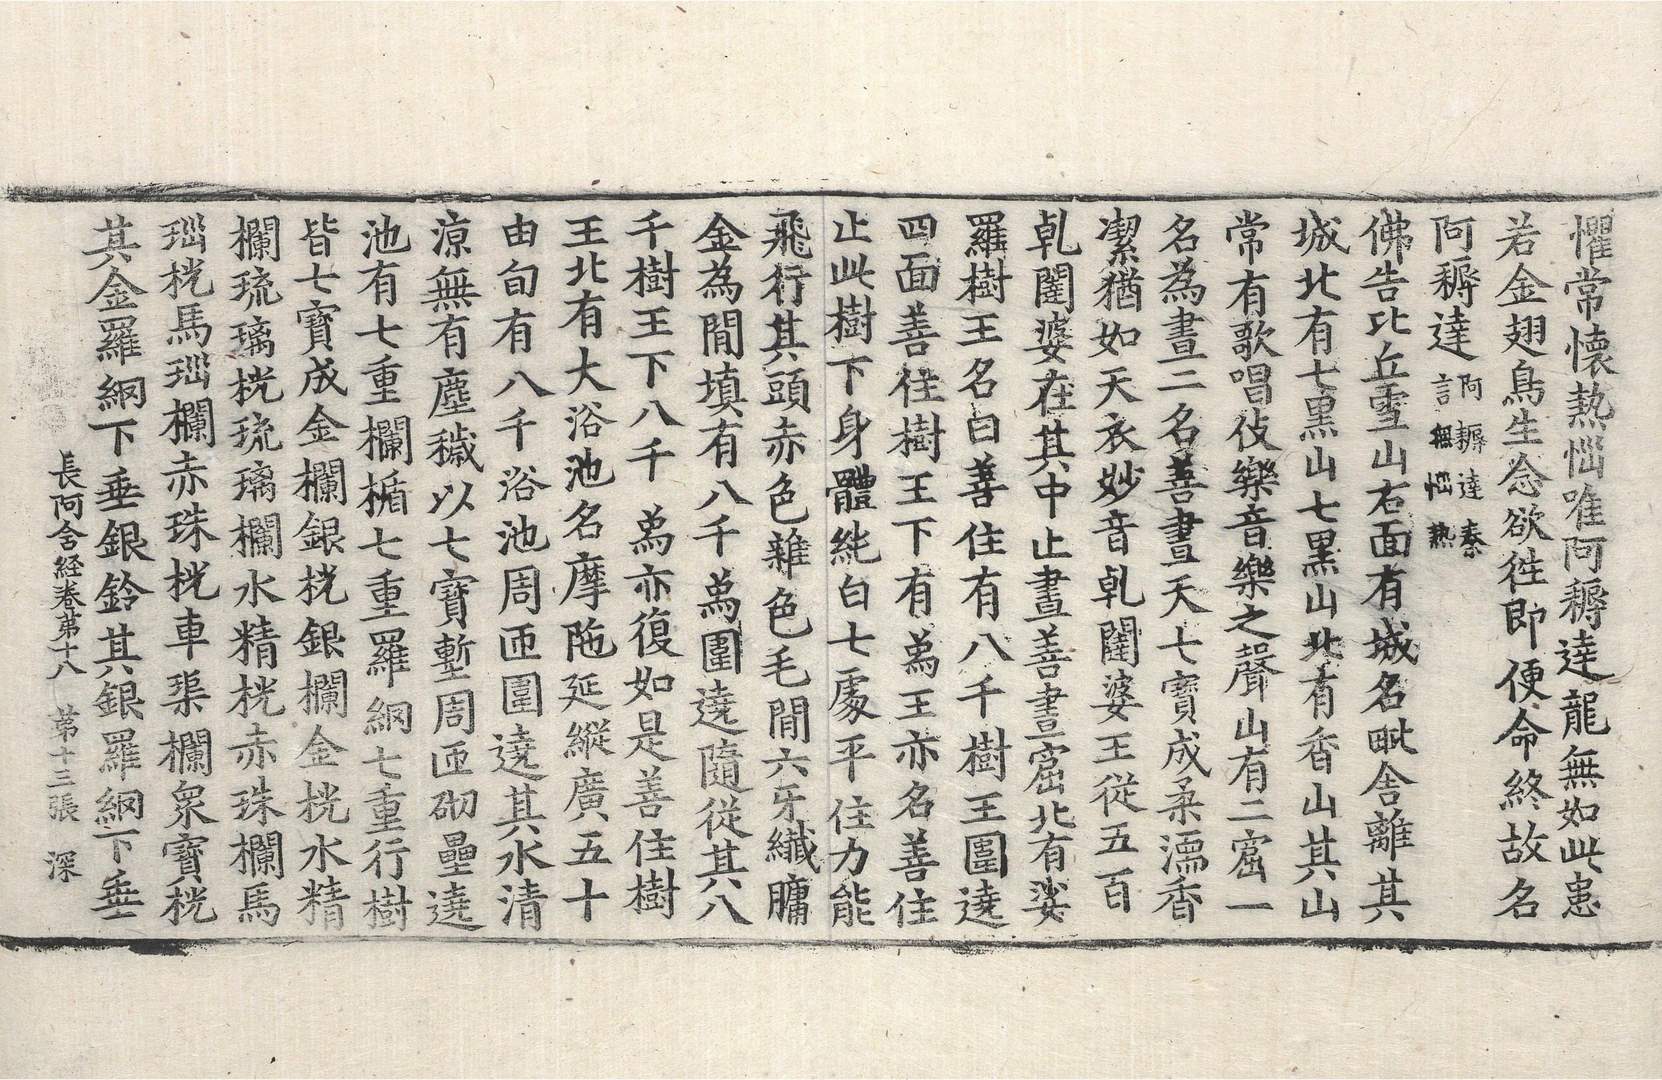 懼常懷熱惱唯阿耨達龍無如此患
若金翅鳥生念欲徃即便命終故名
阿耨達阿耨達秦言無惱熱
佛告比丘雪山右面有城名毗舍離其
城北有七黑山七黑山北有香山其山
常有歌唱伎樂音樂之聲山有二窟一
名為晝二名善晝天七寶成柔濡香
潔猶如天衣妙音乹闥婆王從五百
乹闥婆在其中止晝善晝窟北有娑
羅樹王名曰善住有八千樹王圍遶
四面善住樹王下有為王亦名善住
止此樹下身體純白七處平住力能
飛行其頭赤色雜色毛間六牙纎𦟛
金為間填有八千為圍遶隨從其八
千樹王下八千為亦復如是善住樹
王北有大浴池名摩陁延縱廣五十
由旬有八千浴池周匝圍遶其水清
涼無有塵穢以七寶塹周匝砌壘遶
池有七重欄楯七重羅網七重行樹
皆七寶成金欄銀桄銀欄金桄水精
欄琉璃桄琉璃欄水精桄赤珠欄馬
瑙桄馬瑙欄赤珠桄車𤦲欄衆寶桄
其金羅網下垂銀鈴其銀羅網下垂
長阿含経卷苐十八　苐十三張　深